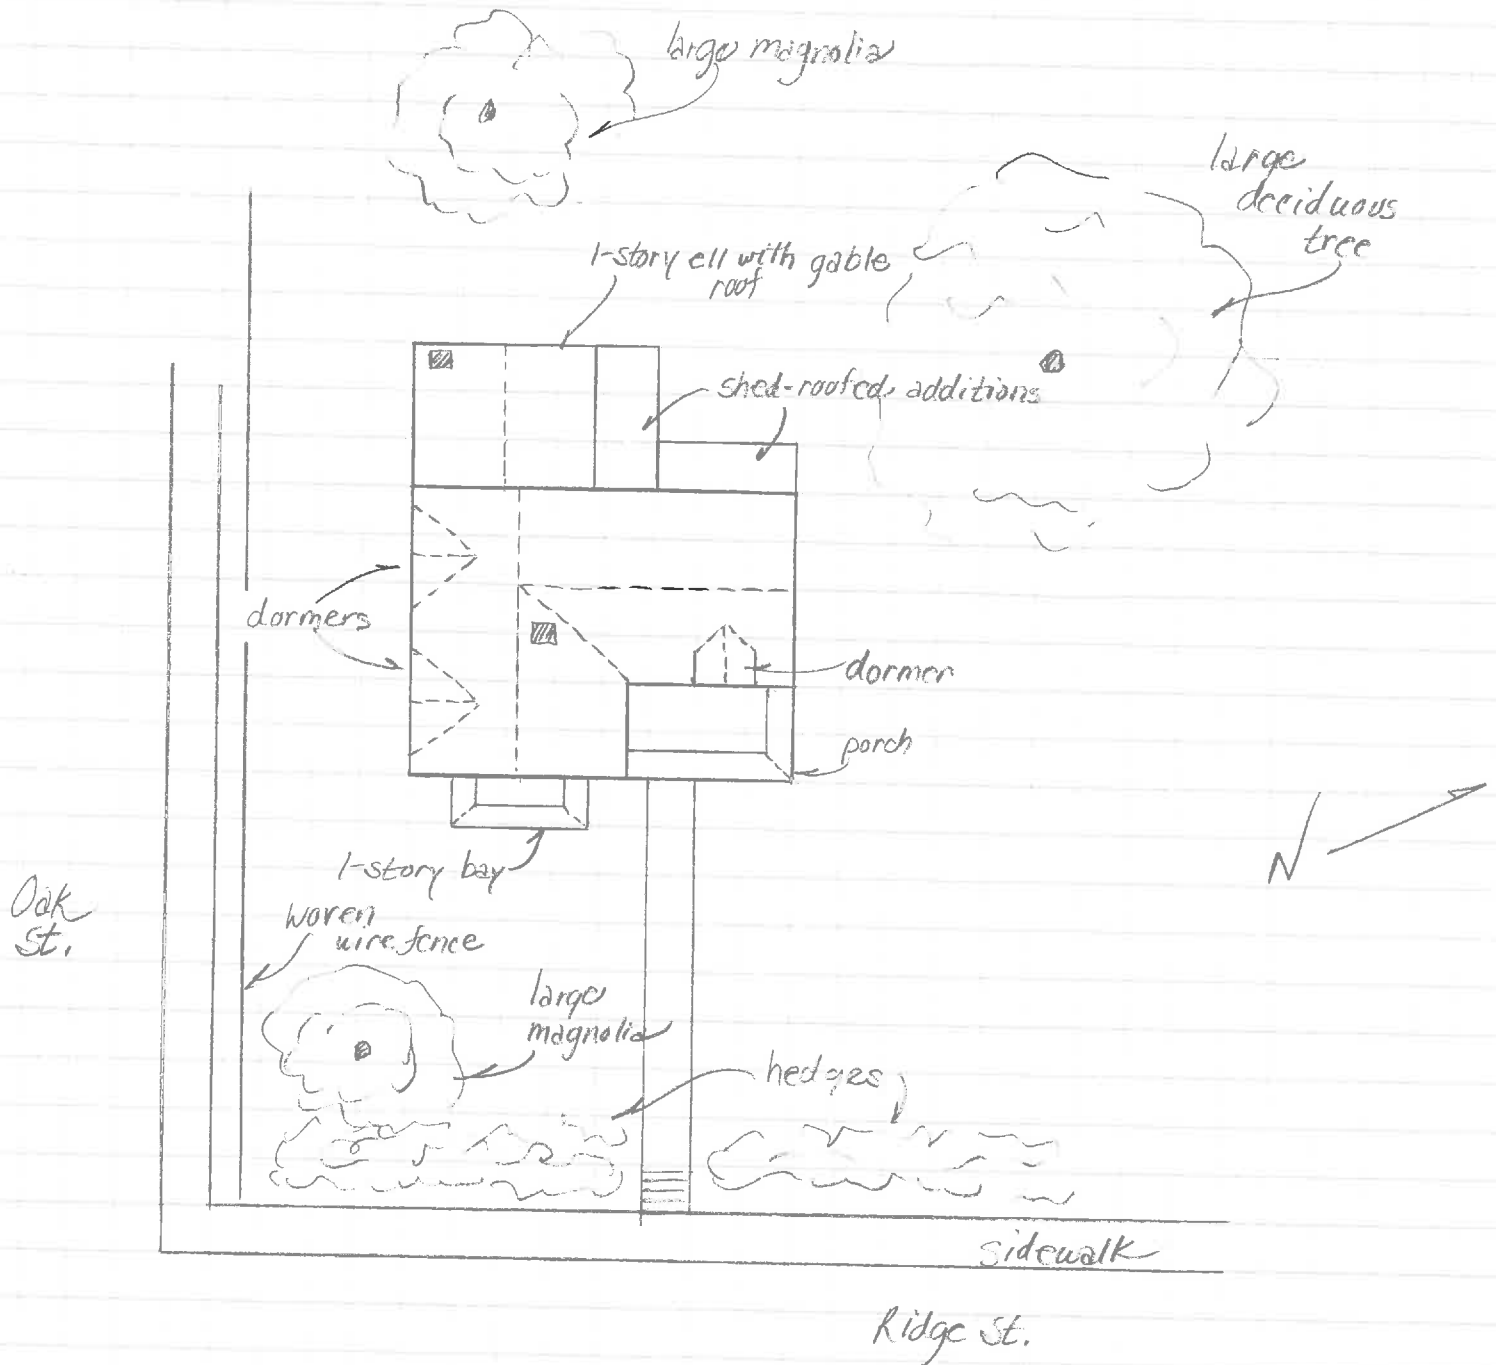 large magnolia
large
deciduous
tree
1-story ell with gable
roof
shed-roofed additions
dormers
dormer
porch
N
1-story bay
Oak
St.
woven
wire fence
large
magnolia
hedges
sidewalk
Ridge St.